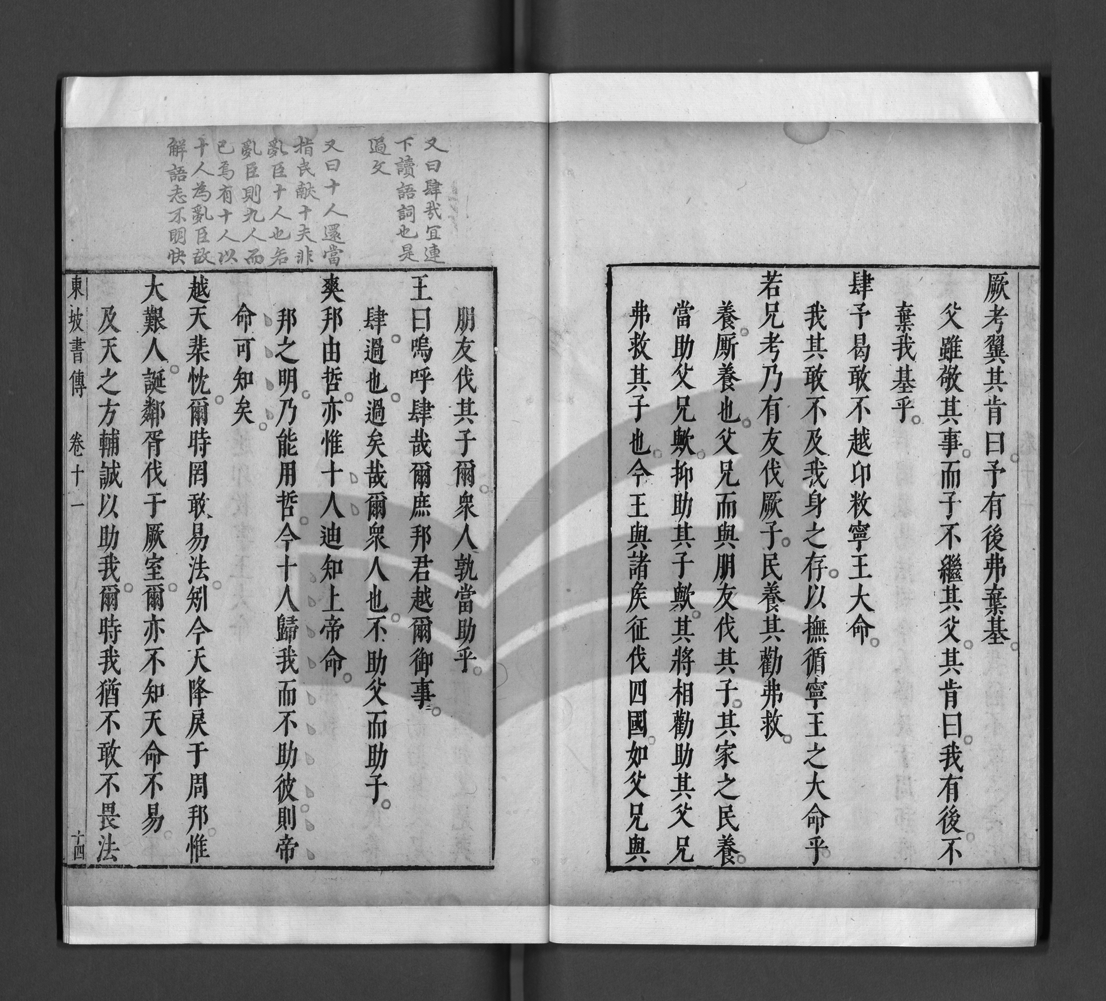 厥考翼其肯曰予有後弗棄基
父雖敬其事而子不繼其父其肯曰我有後不
棄我基乎
肆予曷敢不越卬敉寧王大命
我其敢不及我身之存以撫循寧王之大命乎
若兄考乃有友伐厥子民養其勸弗救
養廝養也父兄而與朋友伐其子其家之民養
當助父兄歟抑助其子歟其將相勸助其父兄
弗救其子也今王與諸矦征伐四國如父兄與
又曰肆哉宜連
下讀語詞也是
過文
又曰十人還當
指民献十夫非
亂臣十人也若
亂臣則九人而
已焉有十人以
十人為亂臣故
解語恚不明快
朋友伐其子爾衆人孰當助乎
王曰嗚呼肆哉爾庶邦君越爾御事
肆過也過矣哉爾衆人也不助父而助子
爽邦由哲亦惟十人迪知上帝命
邦之明乃能用哲今十人歸我而不助彼則帝
命可知矣
越天棐忱爾時罔敢易法矧今天降戾于周邦惟
大艱人誕鄰胥伐于厥室爾亦不知天命不易
及天之方輔誠以助我爾時我猶不敢不畏法
東坡書傳 卷十一 十四